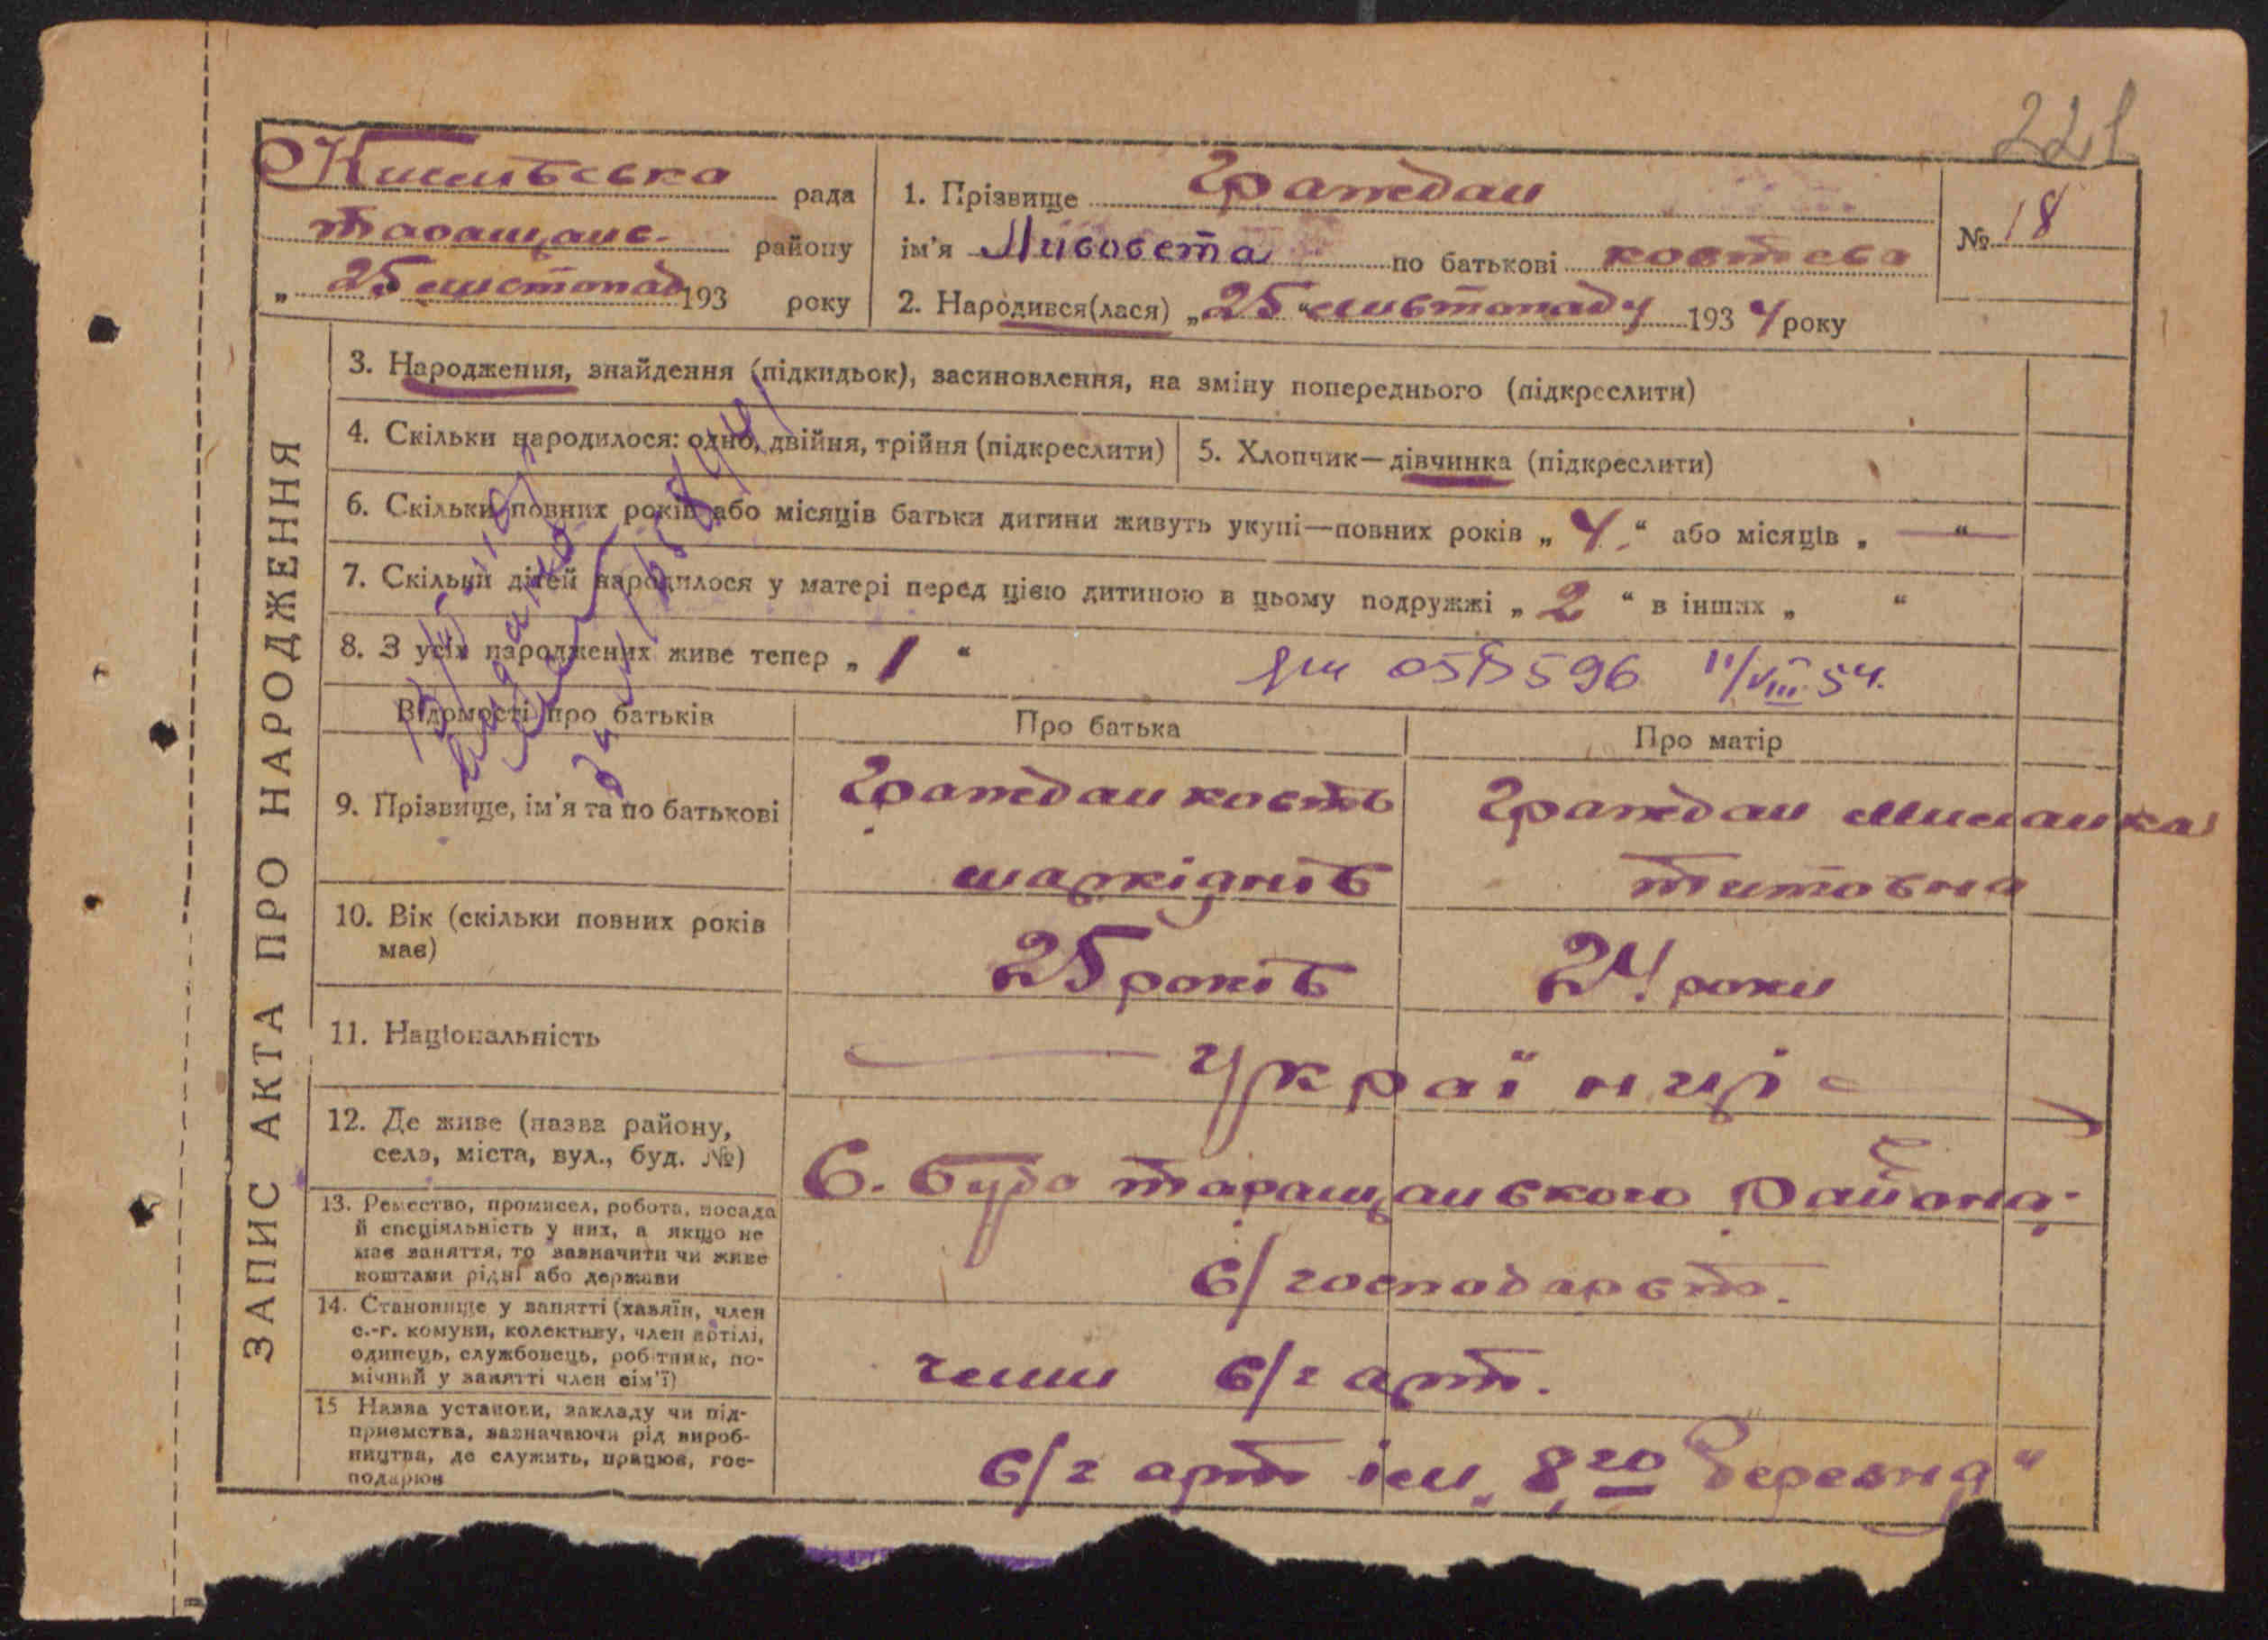 221
Кишлівська рада
таращанс. району
„ 25 листопад 193 року
1. Прізвище Граждан
ім'я Лисовета по батькові костева
2. Народився(лася) „ 25 " листопаду 193 4 року
№ 18
ЗАПИС АКТА ПРО НАРОДЖЕННЯ
3. Народження, знайдення (підкидьок), засиновлення, на зміну попереднього (підкреслити)
4. Скільки народилося: одно, двійня, трійня (підкреслити)
5. Хлопчик—дівчинка (підкреслити)
6. Скільки повних років або місяців батьки дитини живуть укупі—повних років „ 4. " або місяців „ — "
7. Скільки дітей народилося у матері перед цією дитиною в цьому подружжі „ 2 " в інших „ "
8. З усіх народжених живе тепер „ 1 "
596 11/VIII 54.
Відомості про батьків
Про батька
Про матір
9. Прізвище, ім'я та по батькові
Граждан кость
Граждан Миланка
титовна
10. Вік (скільки повних років
має)
25 років
24 роки
11. Національність
Українці
12. Де живе (назва району,
села, міста, вул., буд. №)
С. буда таращанского района.
13. Ремество, промисел, робота, посада
й спеціяльність у них, а якщо не
має заняття, то зазначити чи живе
коштами рідні або держави
с/господарст.
14. Становище у занятті (хазяїн, член
с.-г. комуни, колективу, член артілі,
одинець, службовець, робітник, по-
мічний у занятті член сім'ї)
члни с/г арт.
15 Назва установи, закладу чи під-
приємства, зазначаючи рід вироб-
ництва, де служить, працює, гос-
подарює
с/г арт ім „ 8го березня "